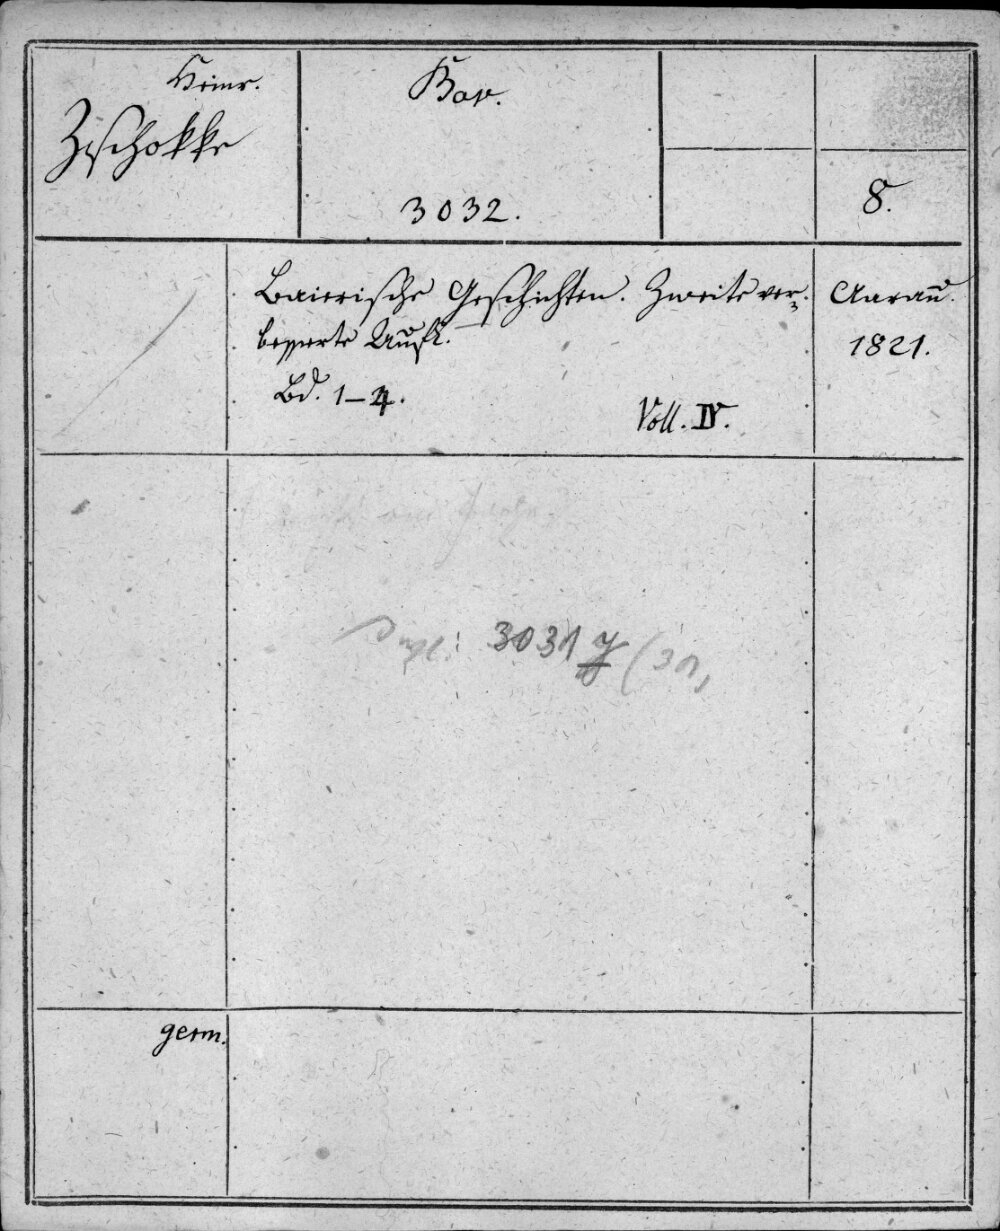 Heinr.
Zschokke
Bav.
3032.
8.
Baierische Geschichten. Zweite ver-
besserte Aufl.
Bd. 1–4.
Voll. IV.
Aarau.
1821.
3031
germ.